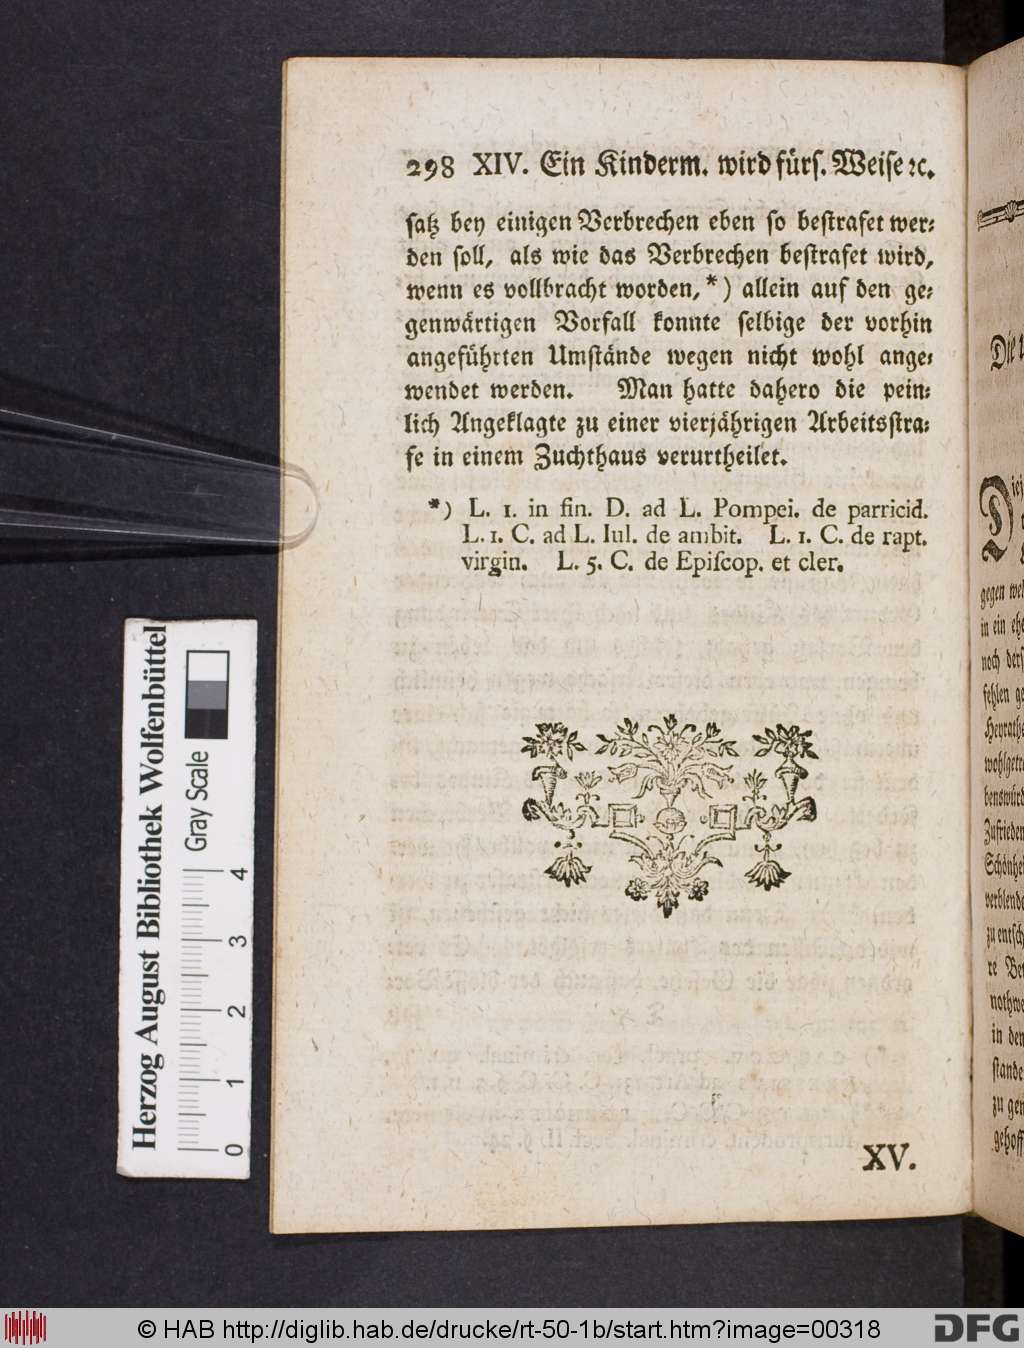 298 XIV. Ein Kinderm. wird fürs. Weise ꝛc.
satz bey einigen Verbrechen eben so bestrafet wer⸗
den soll, als wie das Verbrechen bestrafet wird,
wenn es vollbracht worden, *) allein auf den ge⸗
genwärtigen Vorfall konnte selbige der vorhin
angeführten Umstände wegen nicht wohl ange⸗
wendet werden. Man hatte dahero die pein⸗
lich Angeklagte zu einer vierjährigen Arbeitsstra⸗
fe in einem Zuchthaus verurtheilet.
*) L. 1. in fin. D. ad L. Pompei. de parricid.
L. 1. C. ad L. Iul. de ambit. L. 1. C. de rapt.
virgin. L. 5. C. de Epiſcop. et cler.
XV.
Die
gegen
in ein
noch
fehlen
in den
zu
Herzog August Bibliothek Wolfenbüttel
Gray Scale
0 1 2 3 4
© HAB http://diglib.hab.de/drucke/rt-50-1b/start.htm?image=00318
DFG